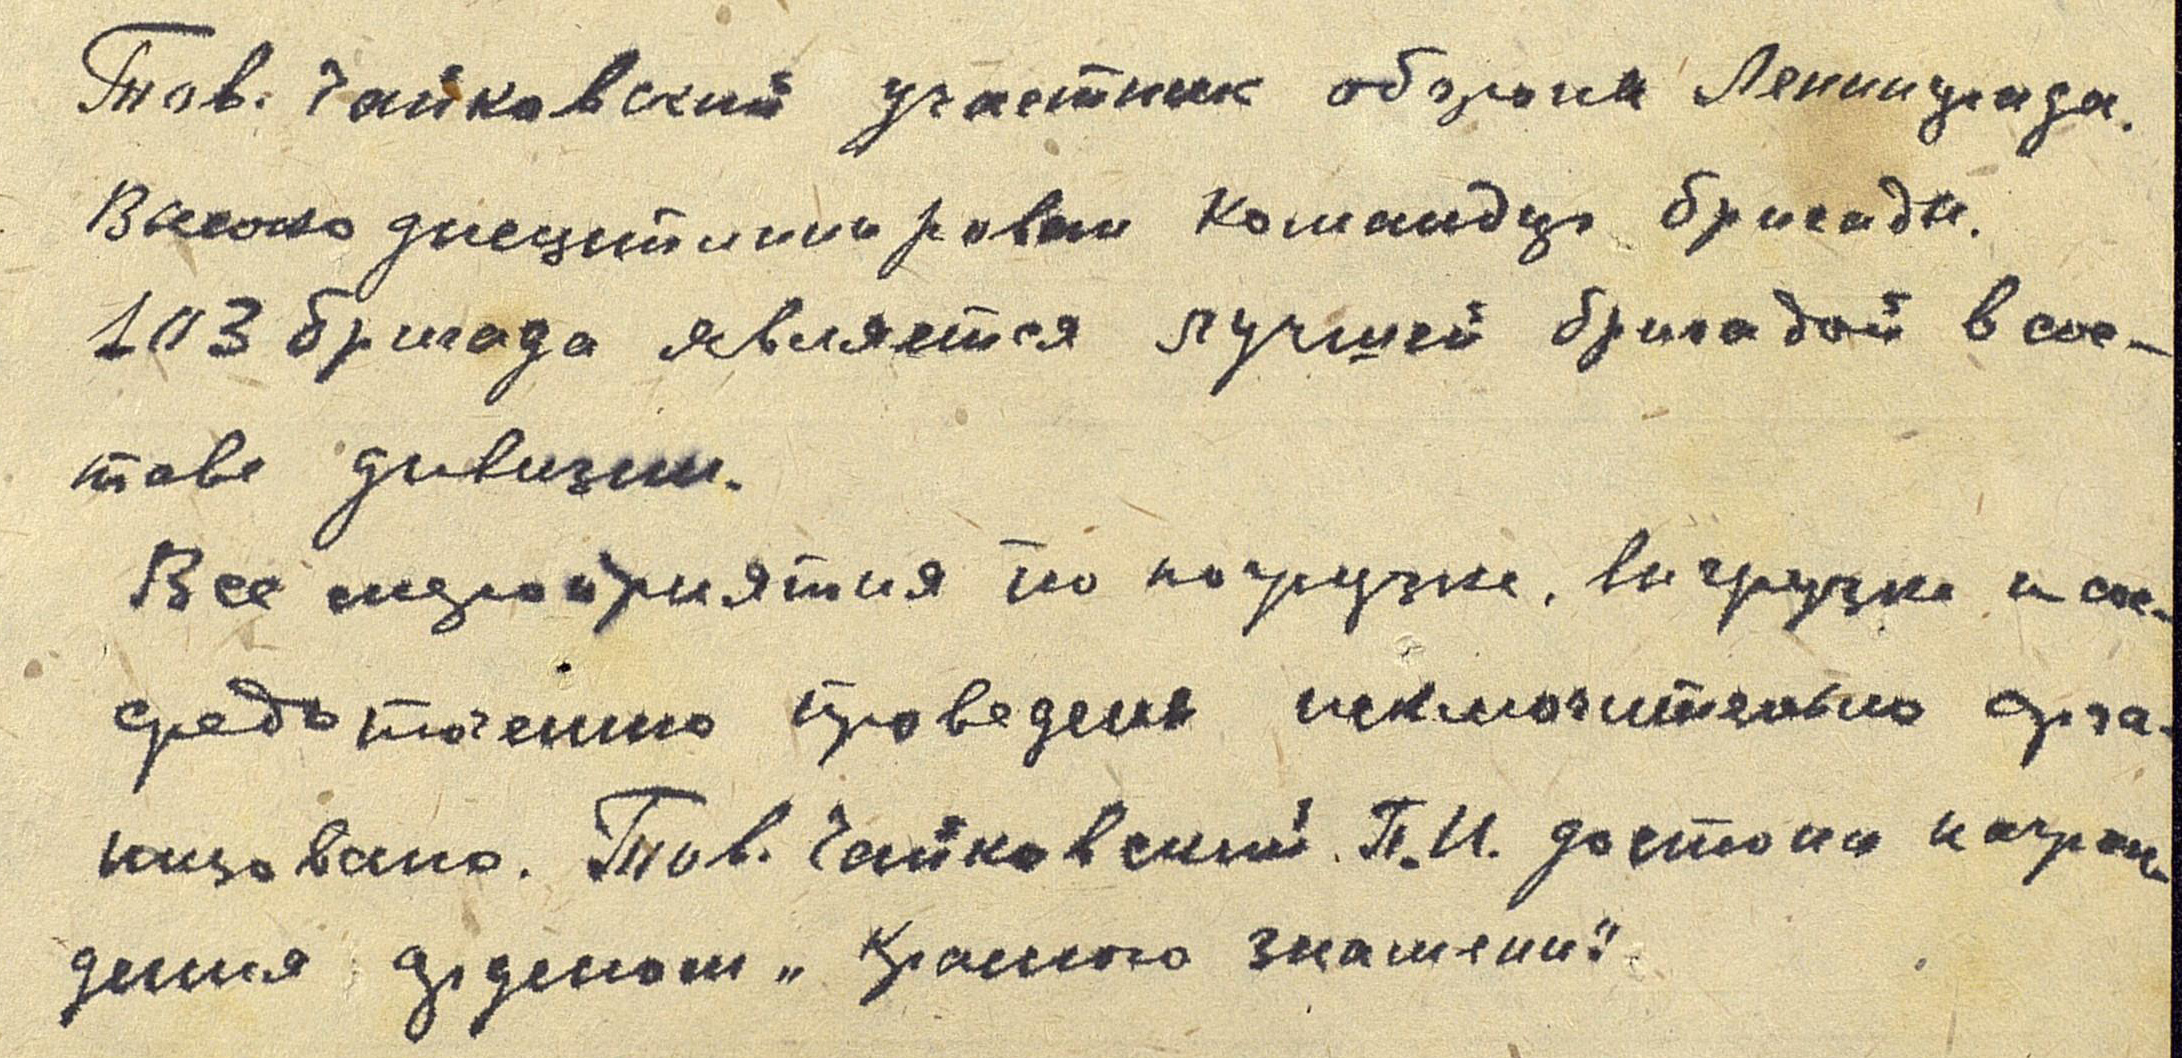 Тов. Чайковский участник обороны Ленинграда.
Высоко дисциплинирован командир бригады.
103 бригада является лучшей бригадой в сос-
таве дивизии.
Все мероприятия по погрузке, выгрузке и сос-
редоточению проведены исключительно орга-
низовано. Тов. Чайковский П.И. достоин награж-
дения орденом „Красного знамени".